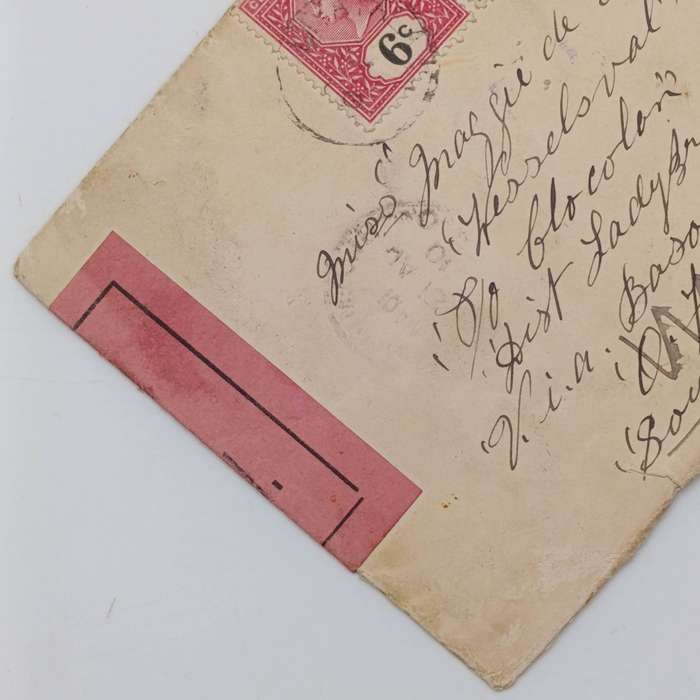 6c
Miss Maggie de
"Hesselsval"
P/o Clocolan
Dist Ladybr
Via Baso
"O.
"Sou